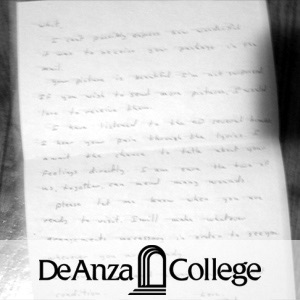 what.
I can't possibly express how wonderful
it was to receive your package in the
mail.
Your picture is beautiful I'm not surprised
If you wish to send more pictures, I would
love to receive them.
I have listened to the CD several times
I hear your pain through the lyrics I
await the chance to talk about your
feelings directly I am sure the two of
us, together, can mend many wounds
please let me know when you are
ready to visit. I will make whatever
arrangements necessary in order to
DeAnza College